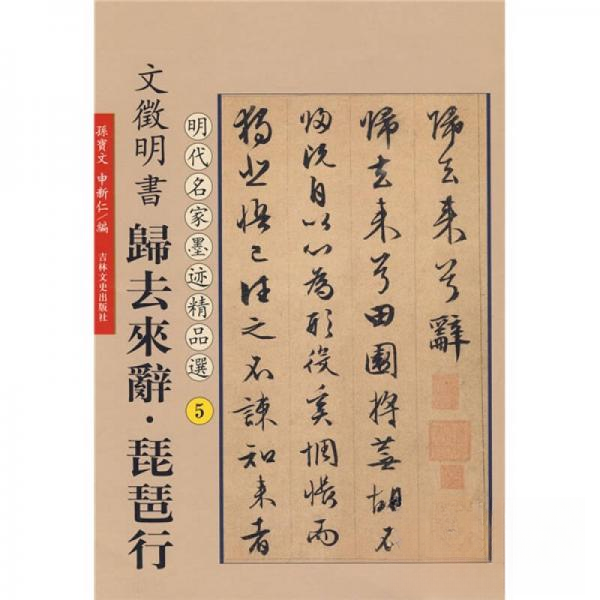 文徵明書 歸去來辭·琵琶行
明代名家墨迹精品選 5
孫寳文 申新仁/編
吉林文史出版社
歸去来兮辭
歸去来兮田園将蕪胡不
歸既自以心為形役奚惆悵而
獨悲悟已往之不諫知来者